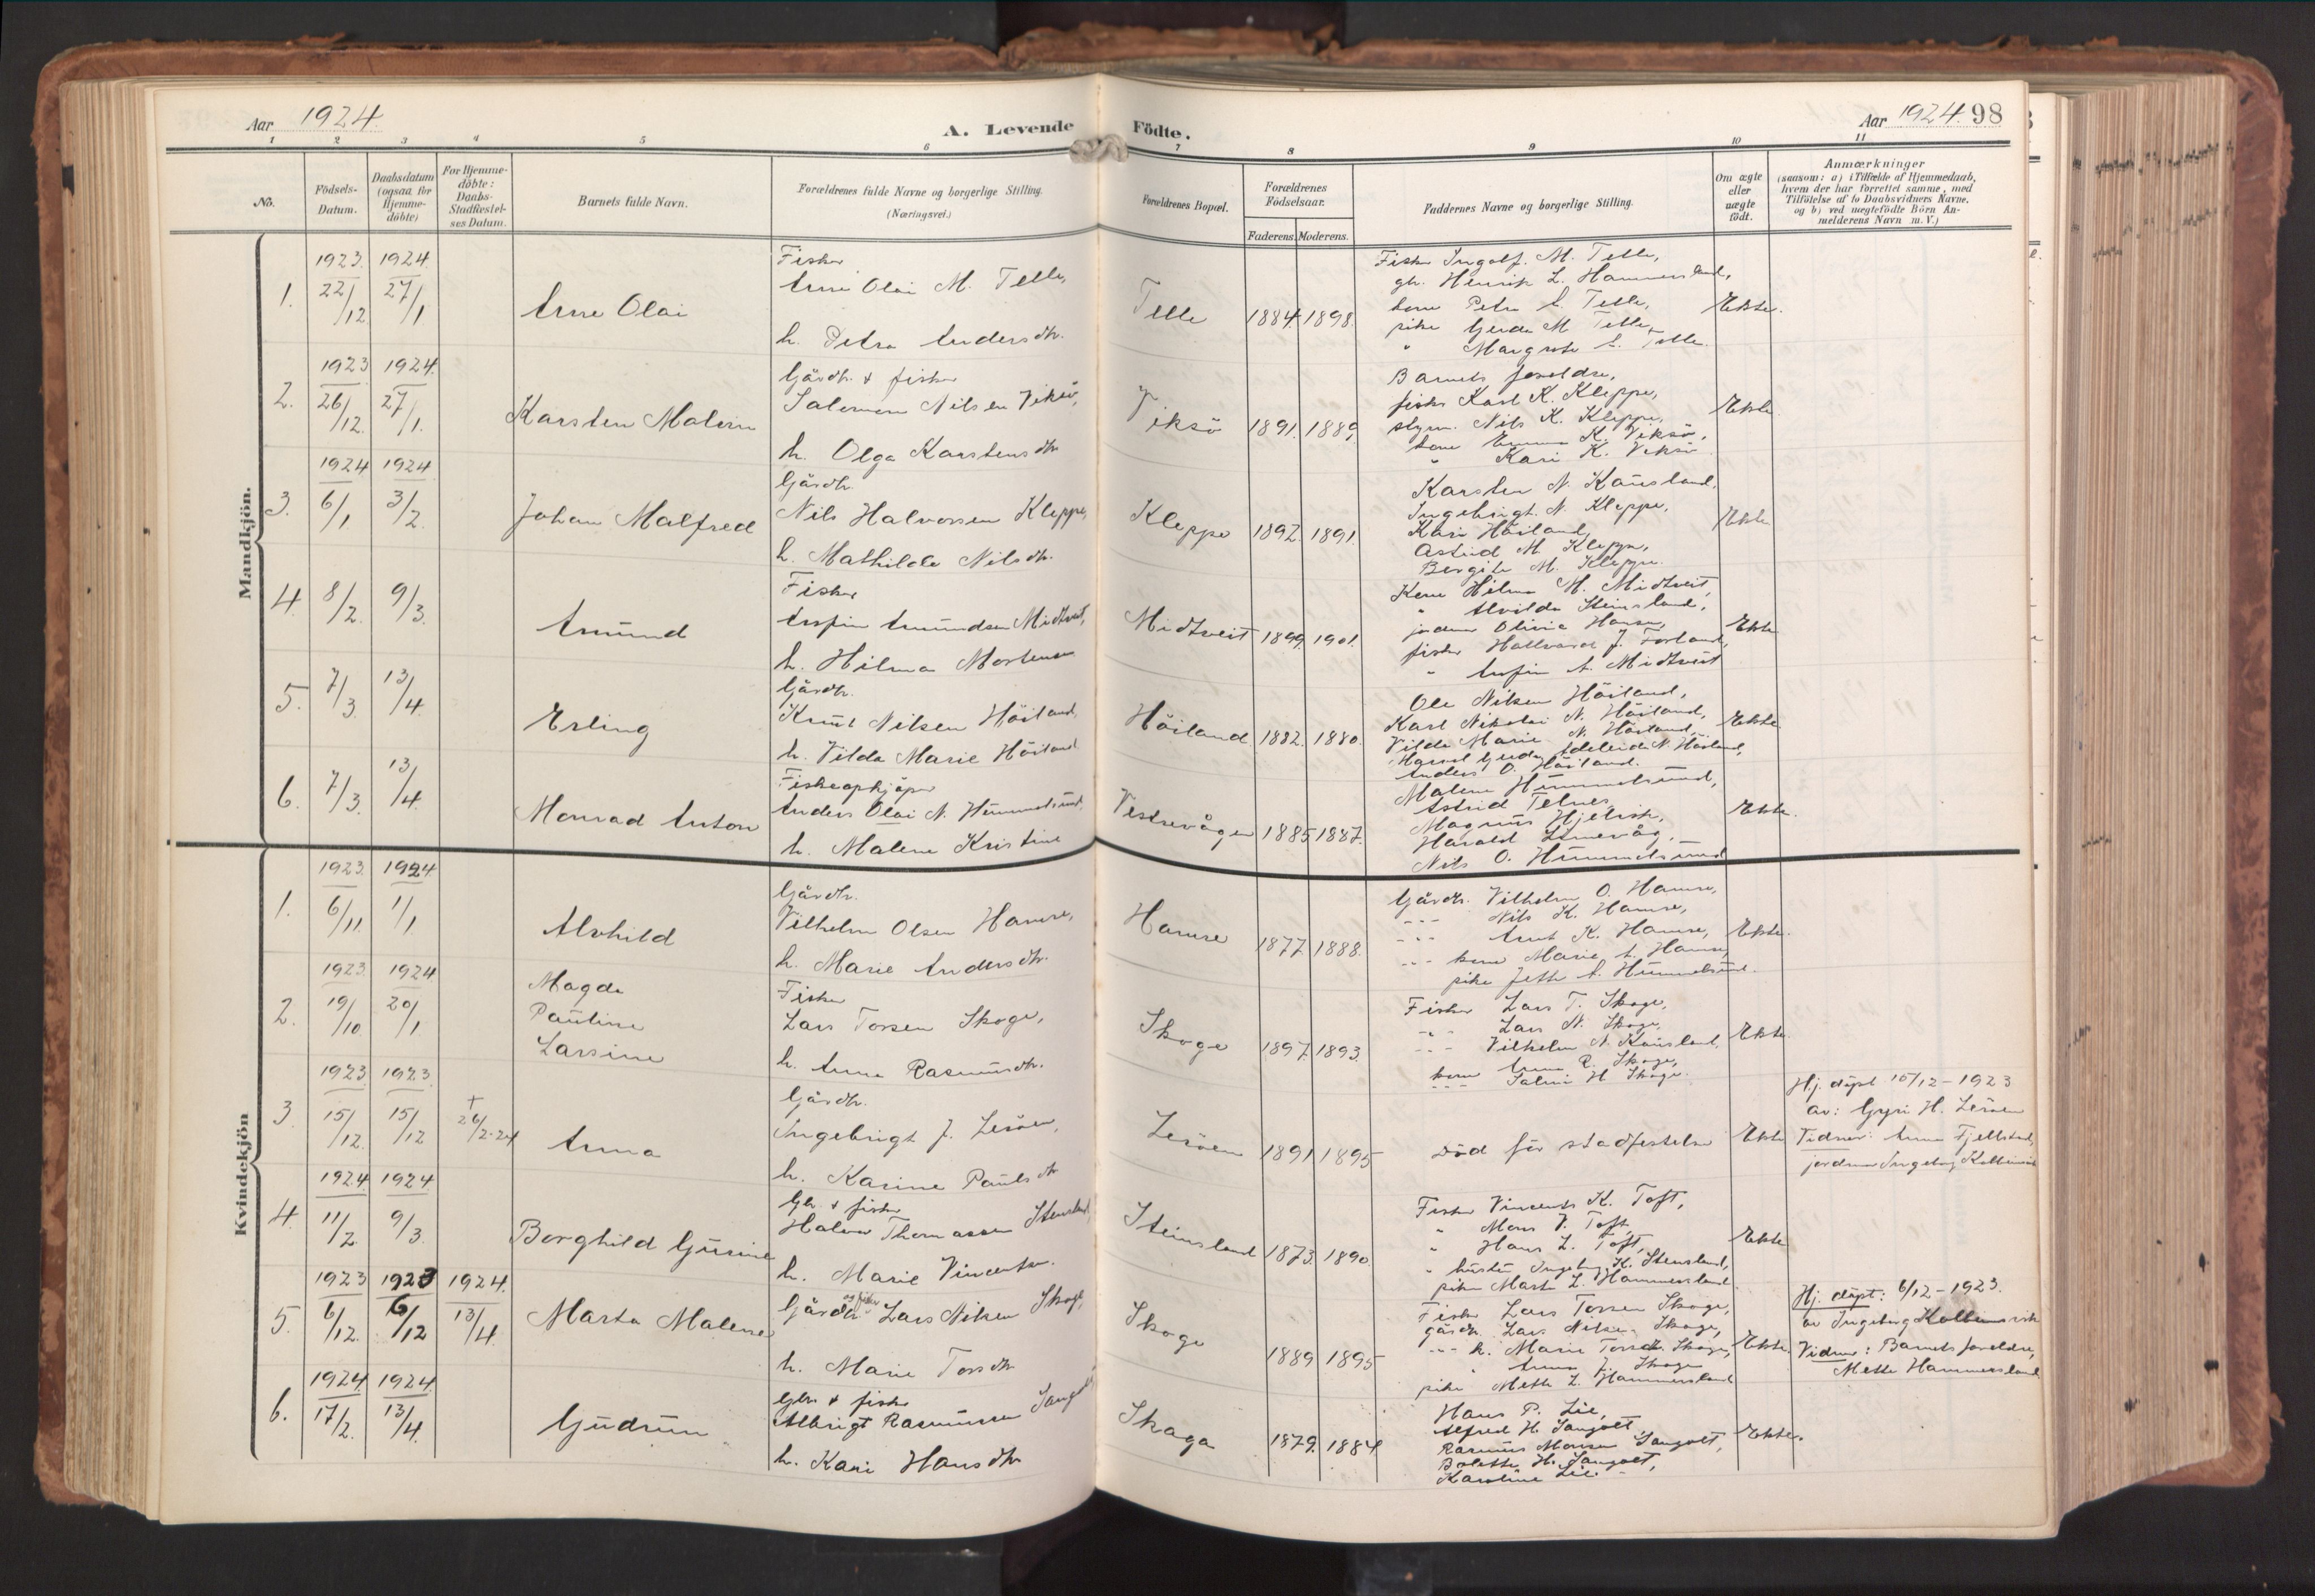 Aar 1924.
A. Levende
Födte.
Aar 1924. 98
1 2 3 4 5 6 7 8 9 10 11
No.
Födsels-
Datum.
Daabsdatum
(ogsaa for
Hjemme-
döbte)
For Hjemme-
döbte:
Daabs-
Stadfæstel-
ses Datum.
Barnets fulde Navn.
Forældrenes fulde Navne og borgerlige Stilling.
(Næringsvei.)
Forældrenes Bopæl.
Forældrenes
Födselsaar.
Faderens. Moderens.
Faddernes Navne og borgerlige Stilling.
Om ægte
eller
uægte
födt.
Anmærkninger
(saasom: a) i Tilfælde af Hjemmedaab,
hvem der har forrettet samme, med
Tilföielse af to Daabsvidners Navne.
og b) ved uægtefödte Börn An-
melderens Navn m. V.)
Mandkjön.
1.
1923. 22/12
1924. 27/1
Arne Olai
Fisker
Arne Olai M. Telle,
h. Petra Andersdtr.
Telle
1884 1898.
Fisker Ingolf. M. Telle,
gb. Henrik L. Hammersland,
kone Petra A. Telle,
pike Gerda M Telle,
" Margrete A. Telle.
Ekte.
2.
1923 26/12.
1924. 27/1.
Karsten Malvin
Gårdbr. & fisker
Salomon Nilsen Viksö,
h. Olga Karstensdtr
Viksö
1891. 1889.
Barnets foreldre,
fisker Karl K. Kleppe,
styrm. Nils K. Kleppe,
kone Emma K. Viksö,
" Kari K. Viksö.
Ekte
3.
1924 6/1
1924 3/2.
Johan Malfred
Gårdbr.
Nils Halvorsen Kleppe,
h. Mathilde Nilsdtr.
Kleppe
1892. 1891.
Karsten N. Kausland,
Ingebrigt. N. Kleppe,
Kari Höiland,
Astrid M. Kleppe,
Bergite M. Kleppe.
Ekte
4.
8/2.
9/3.
Amund
Fisker
Arfin Amundsen Midtveit,
h. Hilma Mortensen
Midtveit
1899. 1901.
Kone Hilma M. Midtveit,
" Alvilda Steinsland,
jordmor Olivia Hansen,
fisker Hallvard J. Forland,
" Arfin A. Midtveit
Ekte
5.
7/3.
13/4.
Erling
Gårdbr.
Knut Nilsen Höiland,
h. Vilda Marie Höiland
Höiland
1882. 1880.
Ole Nilsen Höiland,
Karl Nikolai N. Höiland,
Vilda Marie N. Höiland,
Gerda Adeleide N. Höiland,
Anders O. Höiland.
Ekte
6.
7/3.
13/4.
Monrad Anton
Fiskeopkjöper
Anders Olai N. Hummelsund,
h. Malene Kristine
Vestrevågen
1885 1887.
Malene Hummelsund,
Astrid Telnes,
Magnus Hjelvik,
Harald Limevåg,
Nils O. Hummelsund
Ekte.
Kvindekjön
1.
1923. 6/11.
1924 1/1
Alvhild
Gårdbr.
Vilhelm Olsen Hamre,
h. Marie Andersdtr.
Hamre
1877. 1888.
Gårdbr. Vilhelm O. Hamre,
- - - Nils K. Hamre,
- - - Arnt K. Hamre,
- - - kone Marie A. Hamre,
pike Jette A. Hummelsund.
Ekte.
2.
1923. 19/10
1924 20/1
Magda
Pauline
Larsine
Fisker
Lars Torsen Skoge,
h. Anna Rasmusdtr.
Skoge
1897. 1893.
Fisker Lars T. Skoge,
- - - Lars N. Skoge,
- - - Vilhelm N. Kausland,
kone Anna R. Skoge,
- - - Salmi H Skoge.
Ekte
3.
1923. 15/12.
1923. 15/12
† 26/2-24
Anna
Gårdbr.
Ingebrigt J. Leröen,
h. Karine Paulsdtr
Leröen
1891 1895
Död för stadfestelse
Ekte
Hj. döpt 15/12 - 1923
av: Gyri H. Leröen
Vidner: Anna Fjellstad,
jordmor Ingeborg Kolbeinsvik
4.
1924 11/2.
1924 9/3.
Borghild Gurine
Gbr & fisker
Halvor Thomassen Stensland,
h. Marie Vincentsdtr.
Steinsland
1873. 1890.
Fisker Vincents K. Toft,
" Mons V. Toft,
" Hans L. Toft,
" hustru Ingeborg K. Stensland,
pike Marta L. Hammersland
Ekte
5.
1923 6/12.
1923 6/12
1924. 13/4
Marta Malene
Gårdbr og fisker Lars Nilsen Skoge,
h. Marie Torsdtr
Skoge
1889 1895
Fisker Lars Torsen Skoge,
gårdbr. Lars Nilsen Skoge,
- - - h. Marie Torsdtr. Skoge,
" Anna J. Skoge
pike Mette L. Hammersland
Ekte.
Hj. döpt: 6/12 - 1923.
av Ingeborg Kolbeinsvik
Vidner: Barnets foreldre,
Mette Hammersland
6.
1924. 17/2.
1924. 13/4.
Gudrun
Gbr & fisker
Albrigt Rasmussen Sangolt
h. Kari Hansdtr
Skaga
1879. 1884
Hans P. Lie,
Alfred H. Sangolt,
Rasmus Monsen Sangolt,
Bolette H. Sangolt,
Karoline Lie.
Ekte.